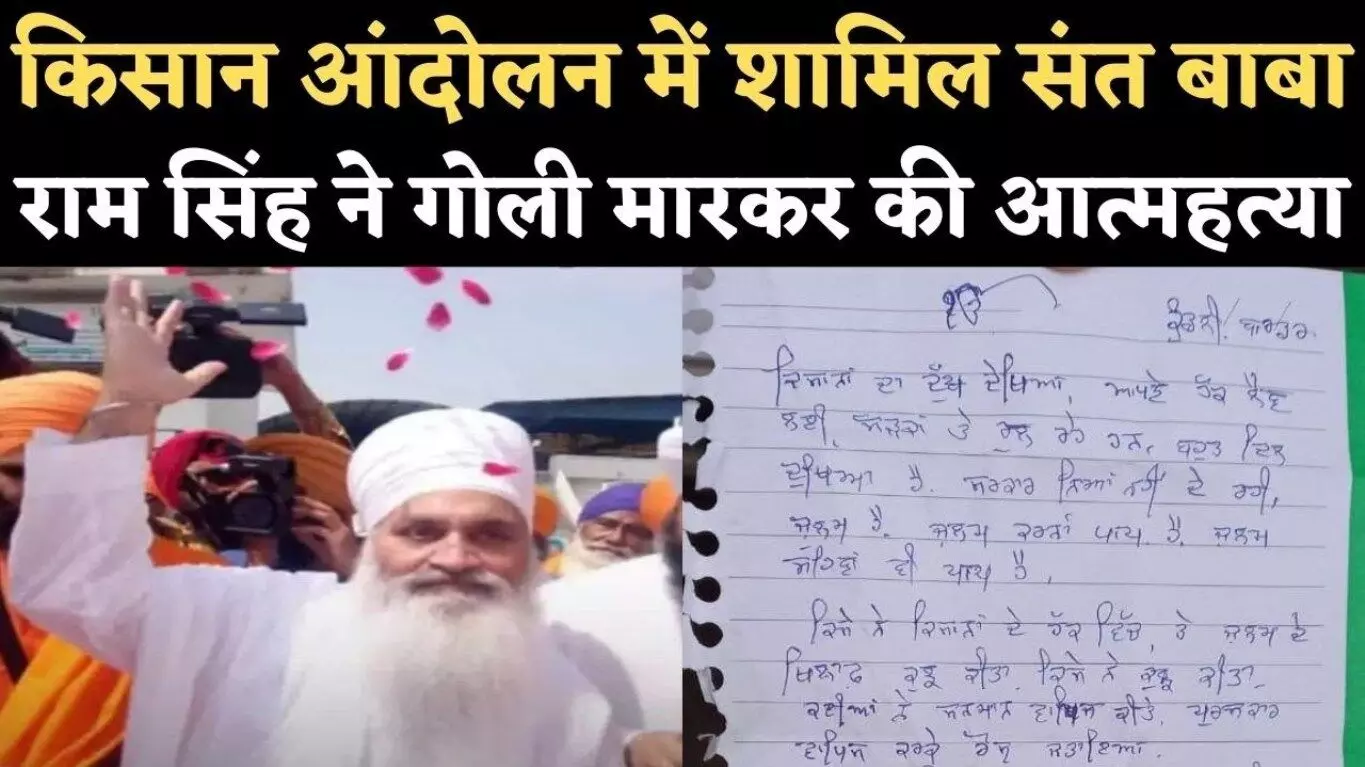 किसान आंदोलन में शामिल संत बाबा
राम सिंह ने गोली मारकर की आत्महत्या
ੴ
ਕੁੰਡਲੀ/ ਬਾਰਡਰ.
ਕਿਸਾਨਾਂ ਦਾ ਦੁੱਖ ਦੇਖਿਆ, ਆਪਣੇ ਹੱਕ ਲੈਣ
ਲਈ, ਸੜਕਾਂ ਤੇ ਰੁਲ ਰਹੇ ਹਨ, ਬਹੁਤ ਦਿਲ
ਦੁਖਿਆ ਹੈ. ਸਰਕਾਰ ਨਿਆਂ ਨਹੀਂ ਦੇ ਰਹੀ,
ਜ਼ੁਲਮ ਹੈ. ਜ਼ੁਲਮ ਕਰਨਾਂ ਪਾਪ ਹੈ. ਜ਼ੁਲਮ
ਸਹਿਣਾਂ ਵੀ ਪਾਪ ਹੈ.
ਕਿਸੇ ਨੇ ਕਿਸਾਨਾਂ ਦੇ ਹੱਕ ਵਿੱਚ, ਤੇ ਜ਼ੁਲਮ ਦੇ
ਖਿਲਾਫ਼ ਕੁਝ ਕੀਤਾ, ਕਿਸੇ ਨੇ ਕੁਝ ਕੀਤਾ.
ਕਈਆਂ ਨੇ ਸਨਮਾਨ ਵਾਪਿਸ ਕੀਤੇ, ਪੁਰਸਕਾਰ
ਵਾਪਿਸ ਕਰਕੇ ਰੋਸ ਜਤਾਇਆ.